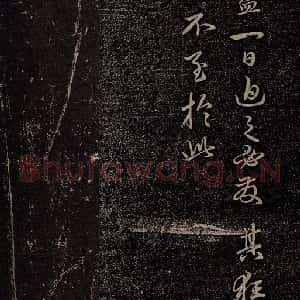 一日迫之其狂
不至於此
Shufawang.CN